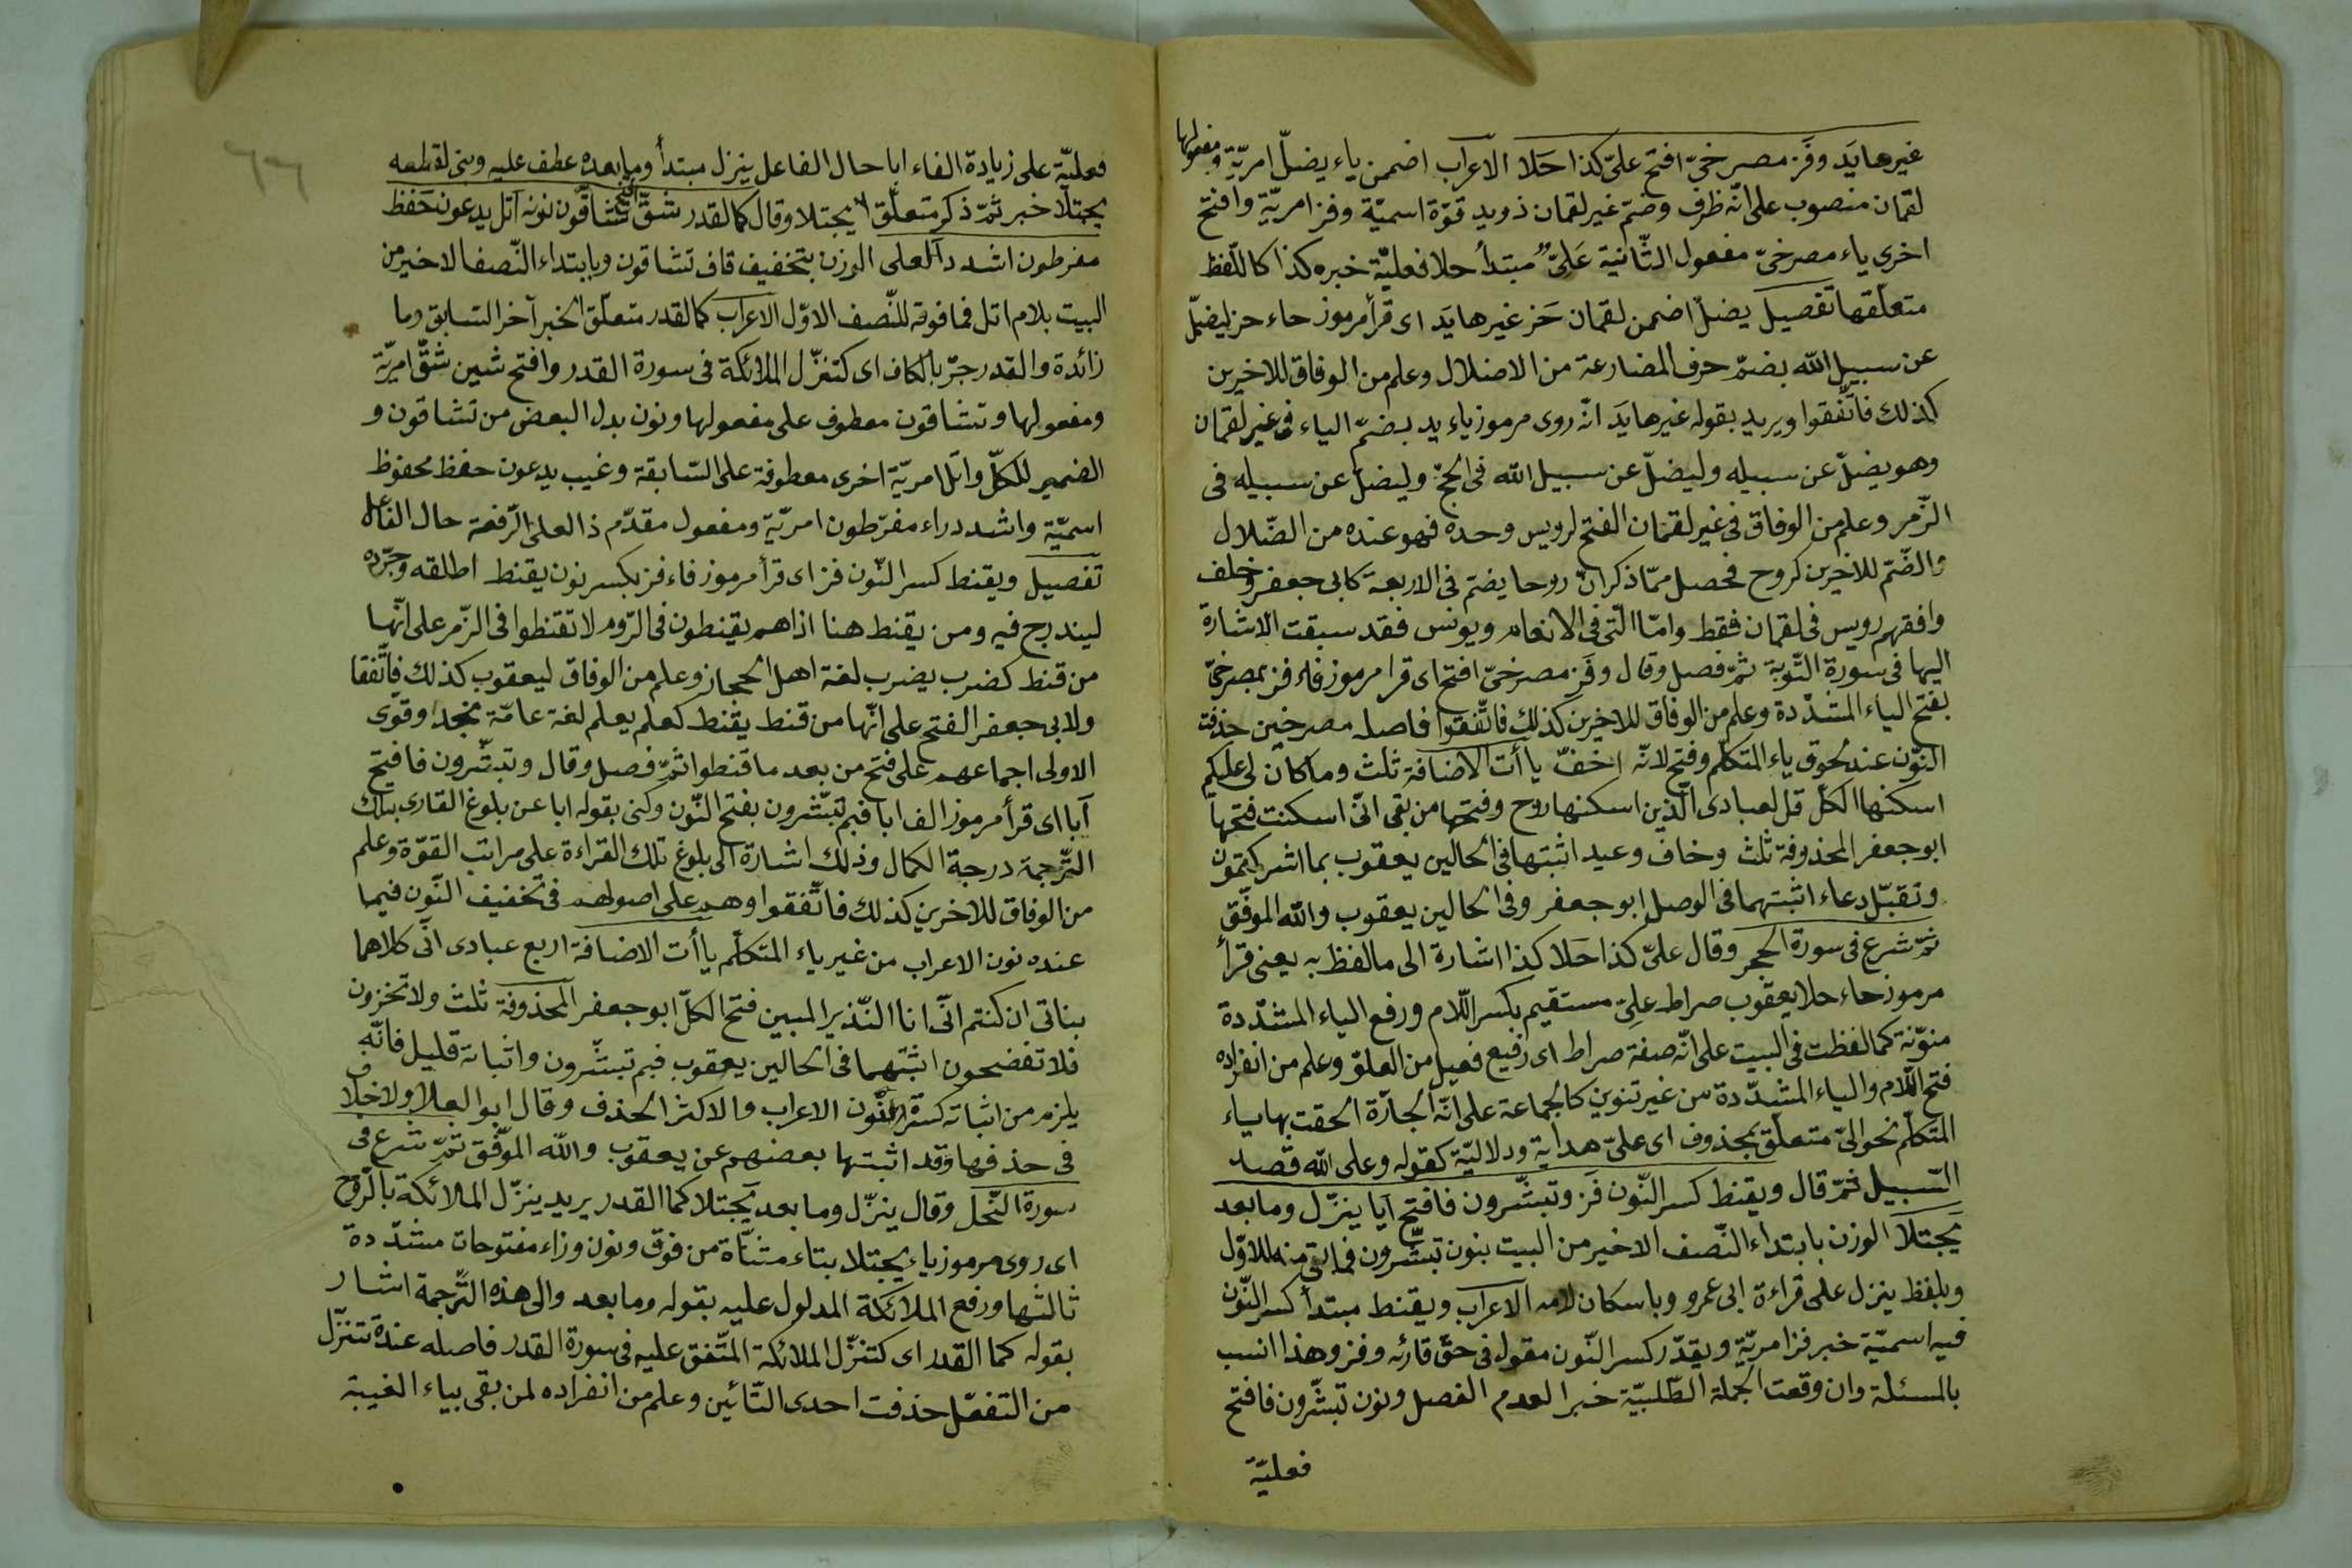 غيرها يَد وفَز مصرخيّ افتح علىّ كذا حَلا الاعراب اضممن ياء يضلّ امريّة ومفعولها
لقمان منصوب على انّه ظرف وضمّ غير لقمان ذو يد قوّة اسميّة وفز امريّة وافتح
اخرى ياء مصرخىّ مفعول الثّانية عَلِىٌّ مبتدأ حلا فعليّة خبره كذا كاللّفظ
متعلّقها تفصيل يضلّ اضممن لقمان حَز غيرها يَد اى قرأ مرموز حاء حز ليضلّ
عن سبيل الله بضمّ حرف المضارعة من الاضلال وعلم من الوفاق للاخرين
كذلك فاتّفقوا ويريد بقوله غيرها يَد انّه روى مرموز ياء يد بضمّ الياء فى غير لقمان
وهو يضلّ عن سبيله وليضلّ عن سبيل الله فى الحجّ وليضلّ عن سبيله فى
الزّمر وعلم من الوفاق فى غير لقمان الفتح لرويس وحده فهو عنده من الضّلال
والضّم للاخرين كروح فحصل ممّا ذكر انّ روحا يضمّ فى الاربعة كابى جعفر وخلف
وافقهم رويس فى لقمان فقط وامّا الّتى فى الانعام ويونس فقد سبقت الاشارة
اليها فى سورة التّوبة ثمّ فصل وقال وفَز مصرخىّ افتح اى قرا مرموز فاء فز بمصرخىّ
بفتح الياء المشدّدة وعلم من الوفاق للاخرين كذلك فاتّفقوا فاصله مصرخين حذفت
النّون عند لحوق ياء المتكلّم وفتح لانّه اخفّ ياأت الاضافة ثلث وما كان لى عليكم
اسكنها الكلّ قل لعبادى الّذين اسكنها روح وفتحها من بقى انّى اسكنت فتحها
ابو جعفر المحذوفة ثلث وخاف وعيد اثبتها فى الحالين يعقوب بما اشركتمون
وتقبّل دعاء اثبتهما فى الوصل ابو جعفر وفى الحالين يعقوب والله الموفّق
ثمّ شرع فى سورة الحجر وقال علىّ كذا حَلا كذا اشارة الى ما لفظ به يعنى قرأ
مرموز حاء حلا يعقوب صراط علىّ مستقيم بكسر اللّام ورفع الياء المشدّدة
منوّنة كما لفظت فى البيت على انّه صفة صراط اى رفيع فعيل من العلوّ وعلم من انفراده
فتح اللّام والياء المشدّدة من غير تنوين كالجماعة على انّه الجارّة الحقت بها ياء
المتكلّم نحو الىّ متعلّق بمحذوف اى علىّ هداية ودلاليّة كقوله وعلى الله قصد
السّبيل ثمّ قال ويقنط كسر النّون فَز وتبشّرون فافتح ابا ينزّل وما بعد
يجتلا الوزن بابتداء النّصف الاخير من البيت بنون تبشّرون فما بقى منه للاوّل
وبلفظ ينزل على قراءة ابى عمرو وباسكان لامه الاعراب ويقنط مبتدأ كسر النّون
فيه اسميّة خبر فز امريّة ويقدّر كسر النّون مقول فى حقّ قارئه وفز وهذا انسب
بالمسئلة وان وقعت الجملة الطّلبيّة خبرا لعدم الفصل ونون تبشّرون فافتح
فعليّة
فعليّة على زيادة الفاء ابا حال الفاعل ينزل مبتدأ وما بعده عطف عليه وبنى لقطعه
يجتلا خبر ثمّ ذكر متعلّق يجتلا وقال كما لقدر شقّ افتح تشاقّون نونه اتل يدعون حَفظ
مفرطون اشدد العلى الوزن بتخفيف قاف تشاقون وبابتداء النّصف الاخير من
البيت بلام اتل فما فوقه للنّصف الاوّل الاعراب كما القدر متعلّق الخبر آخر السّابق وما
زائدة والقدر جرّ بالكاف اى كتنزّل الملائكة فى سورة القدر وافتح شين شقّ امريّة
ومفعولها وتشاقون معطوف على مفعولها ونون بدل البعض من تشاقون و
الضمير للكلّ واتل امريّة اخرى معطوفة على السّابقة وغيب يدعون حفظ محفوظ
اسميّة واشدد راء مفرّطون امريّة ومفعول مقدّم ذا العلى الرّفعة حال الفاعل
تفصيل ويقنط كسر النّون فز اى قرأ مرموز فاء فز بكسر نون يقنط اطلقه وجرّده
ليندرج فيه ومن يقنط هنا اذا هم يقنطون فى الرّوم لا تقنطوا فى الزّمر على انّها
من قنط كضرب يضرب لغة اهل الحجاز وعلم من الوفاق ليعقوب كذلك فاتّفقا
ولابى جعفر الفتح على انّها من قنط يقنط كعلم يعلم لغة عامّة نجد وقوى
الاولى اجماعهم على فتح من بعد ما قنطوا ثمّ فصل وقال وتبشّرون فافتح
آبا اى قرأ مرموز الف ابا فبم تبشّرون بفتح النّون وكنى بقوله ابا عن بلوغ القارى بتلك
التّرجمة درجة الكمال وذلك اشارة الى بلوغ تلك القراءة على مراتب القوّة وعلم
من الوفاق للاخرين كذلك فاتّفقوا وهم على اصولهم فى تخفيف النّون فيما
عنده نون الاعراب من غير ياء المتكلّم ياأت الاضافة اربع عبادى انّى كلاهما
بناتى ان كنتم انّى انا النّذير المبين فتح الكلّ ابو جعفر المحذوفة ثلث ولا تخزون
فلا تفضحون اثبتهما فى الحالين يعقوب فبم تبشّرون واثباته قليل فانّه
يلزم من اثباته كسرة النّون الاعراب والاكثر الحذف وقال ابو العلا ولا خلاف
فى حذفها وقد اثبتها بعضهم عن يعقوب والله الموفّق ثمّ شرع فى
سورة النّحل وقال ينزّل وما بعد يجتلا كما القدر يريد ينزّل الملائكة بالرّوح
اى روى مرموز ياء يجتلا بتاء مثنّاة من فوق ونون وزاء مفتوحات مشدّدة
ثالثها ورفع الملائكة المدلول عليه بقوله وما بعد والى هذه التّرجمة اشار
بقوله كما القدر اى كتنزّل الملائكة المتّفق عليه فى سورة القدر فاصله عنده تتنزّل
من التفعّل حذفت احدى التّائين وعلم من انفراده لمن بقى بياء الغيبة